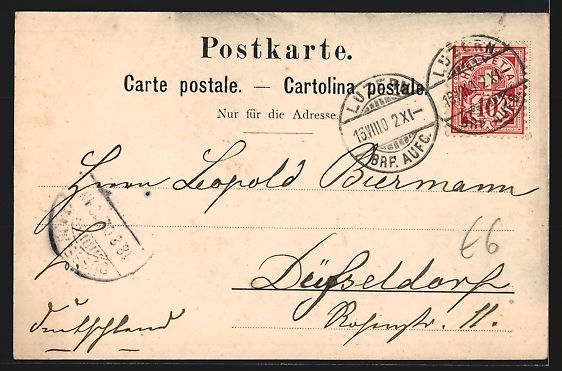 Postkarte.
Carte postale. — Cartolina postale.
Nur für die Adresse.
LUZERN
16.VIII.0 2 XI-
BRF. AUFG.
LUZERN
HELVETIA
10
Herrn Leopold Biermann
66
Düsseldorf
Deutschland
Rosenstr. 11.